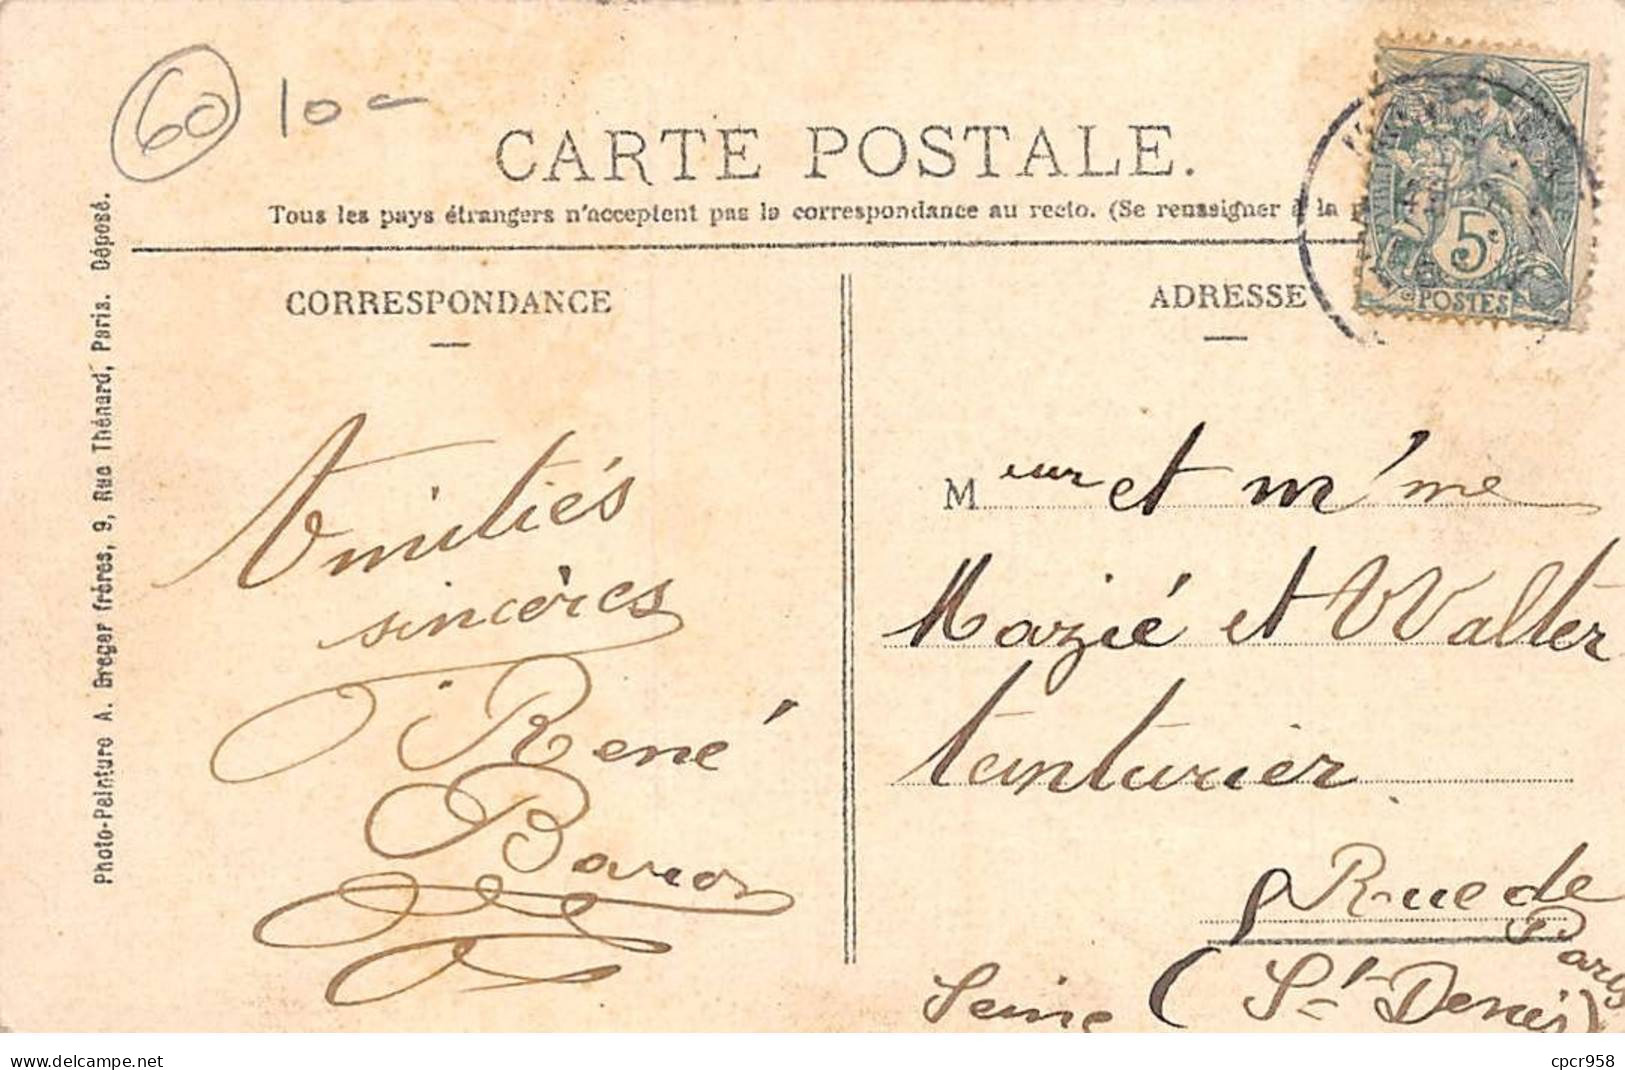 60 10 -
CARTE POSTALE.
Tous les pays étrangers n'acceptent pas la correspondance au recto. (Se renseigner à la
5c
POSTES
CORRESPONDANCE
ADRESSE
Photo-Peinture A. Breger frères, 9, Rue Thénard, Paris. Déposé.
Amitiés
sincères
René
Baron
Meur et m'me
Mazié et Walter
teinturier
Rue de
Paris
Seine (St Denis)
www.delcampe.net
cpcr958